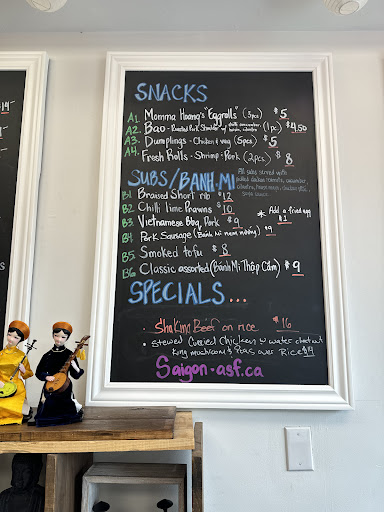 14
SNACKS
A1. Momma Hoang's "Eggrolls" (3pcs) $5
A2. Bao - Roasted Pork Shoulder w/ (1pc) $4.50
A3. Dumplings - Chicken & veg (5pcs) $5
A4. Fresh Rolls - Shrimp + Pork (2pcs) $8
SUBS/BANH MI
All subs served with
pickled daikon + carrots, cucumber,
cilantro,
B1 Braised Short rib $12
B2 Chilli lime Prawns $10
B3 Vietnamese Bbq Pork $9
* Add a fried egg
$1
B4 Pork Sausage (Bánh mì nem nướng) $9
B5 Smoked tofu $8
B6 Classic assorted (Bánh Mì Thập Cẩm) $9
SPECIALS...
· Shaking Beef on rice $16
· Stewed Curried Chicken w water chestnut
King mushrooms & Peas over Rice $14
Saigon-asf.ca